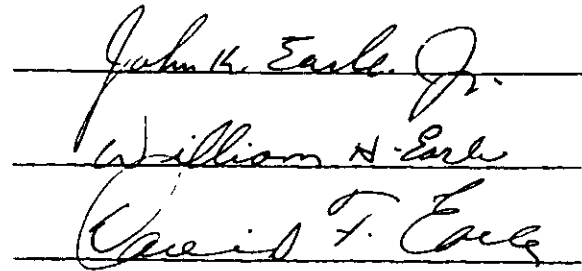 John K. Earle. Jr.
William H. Earle
David F. Earle